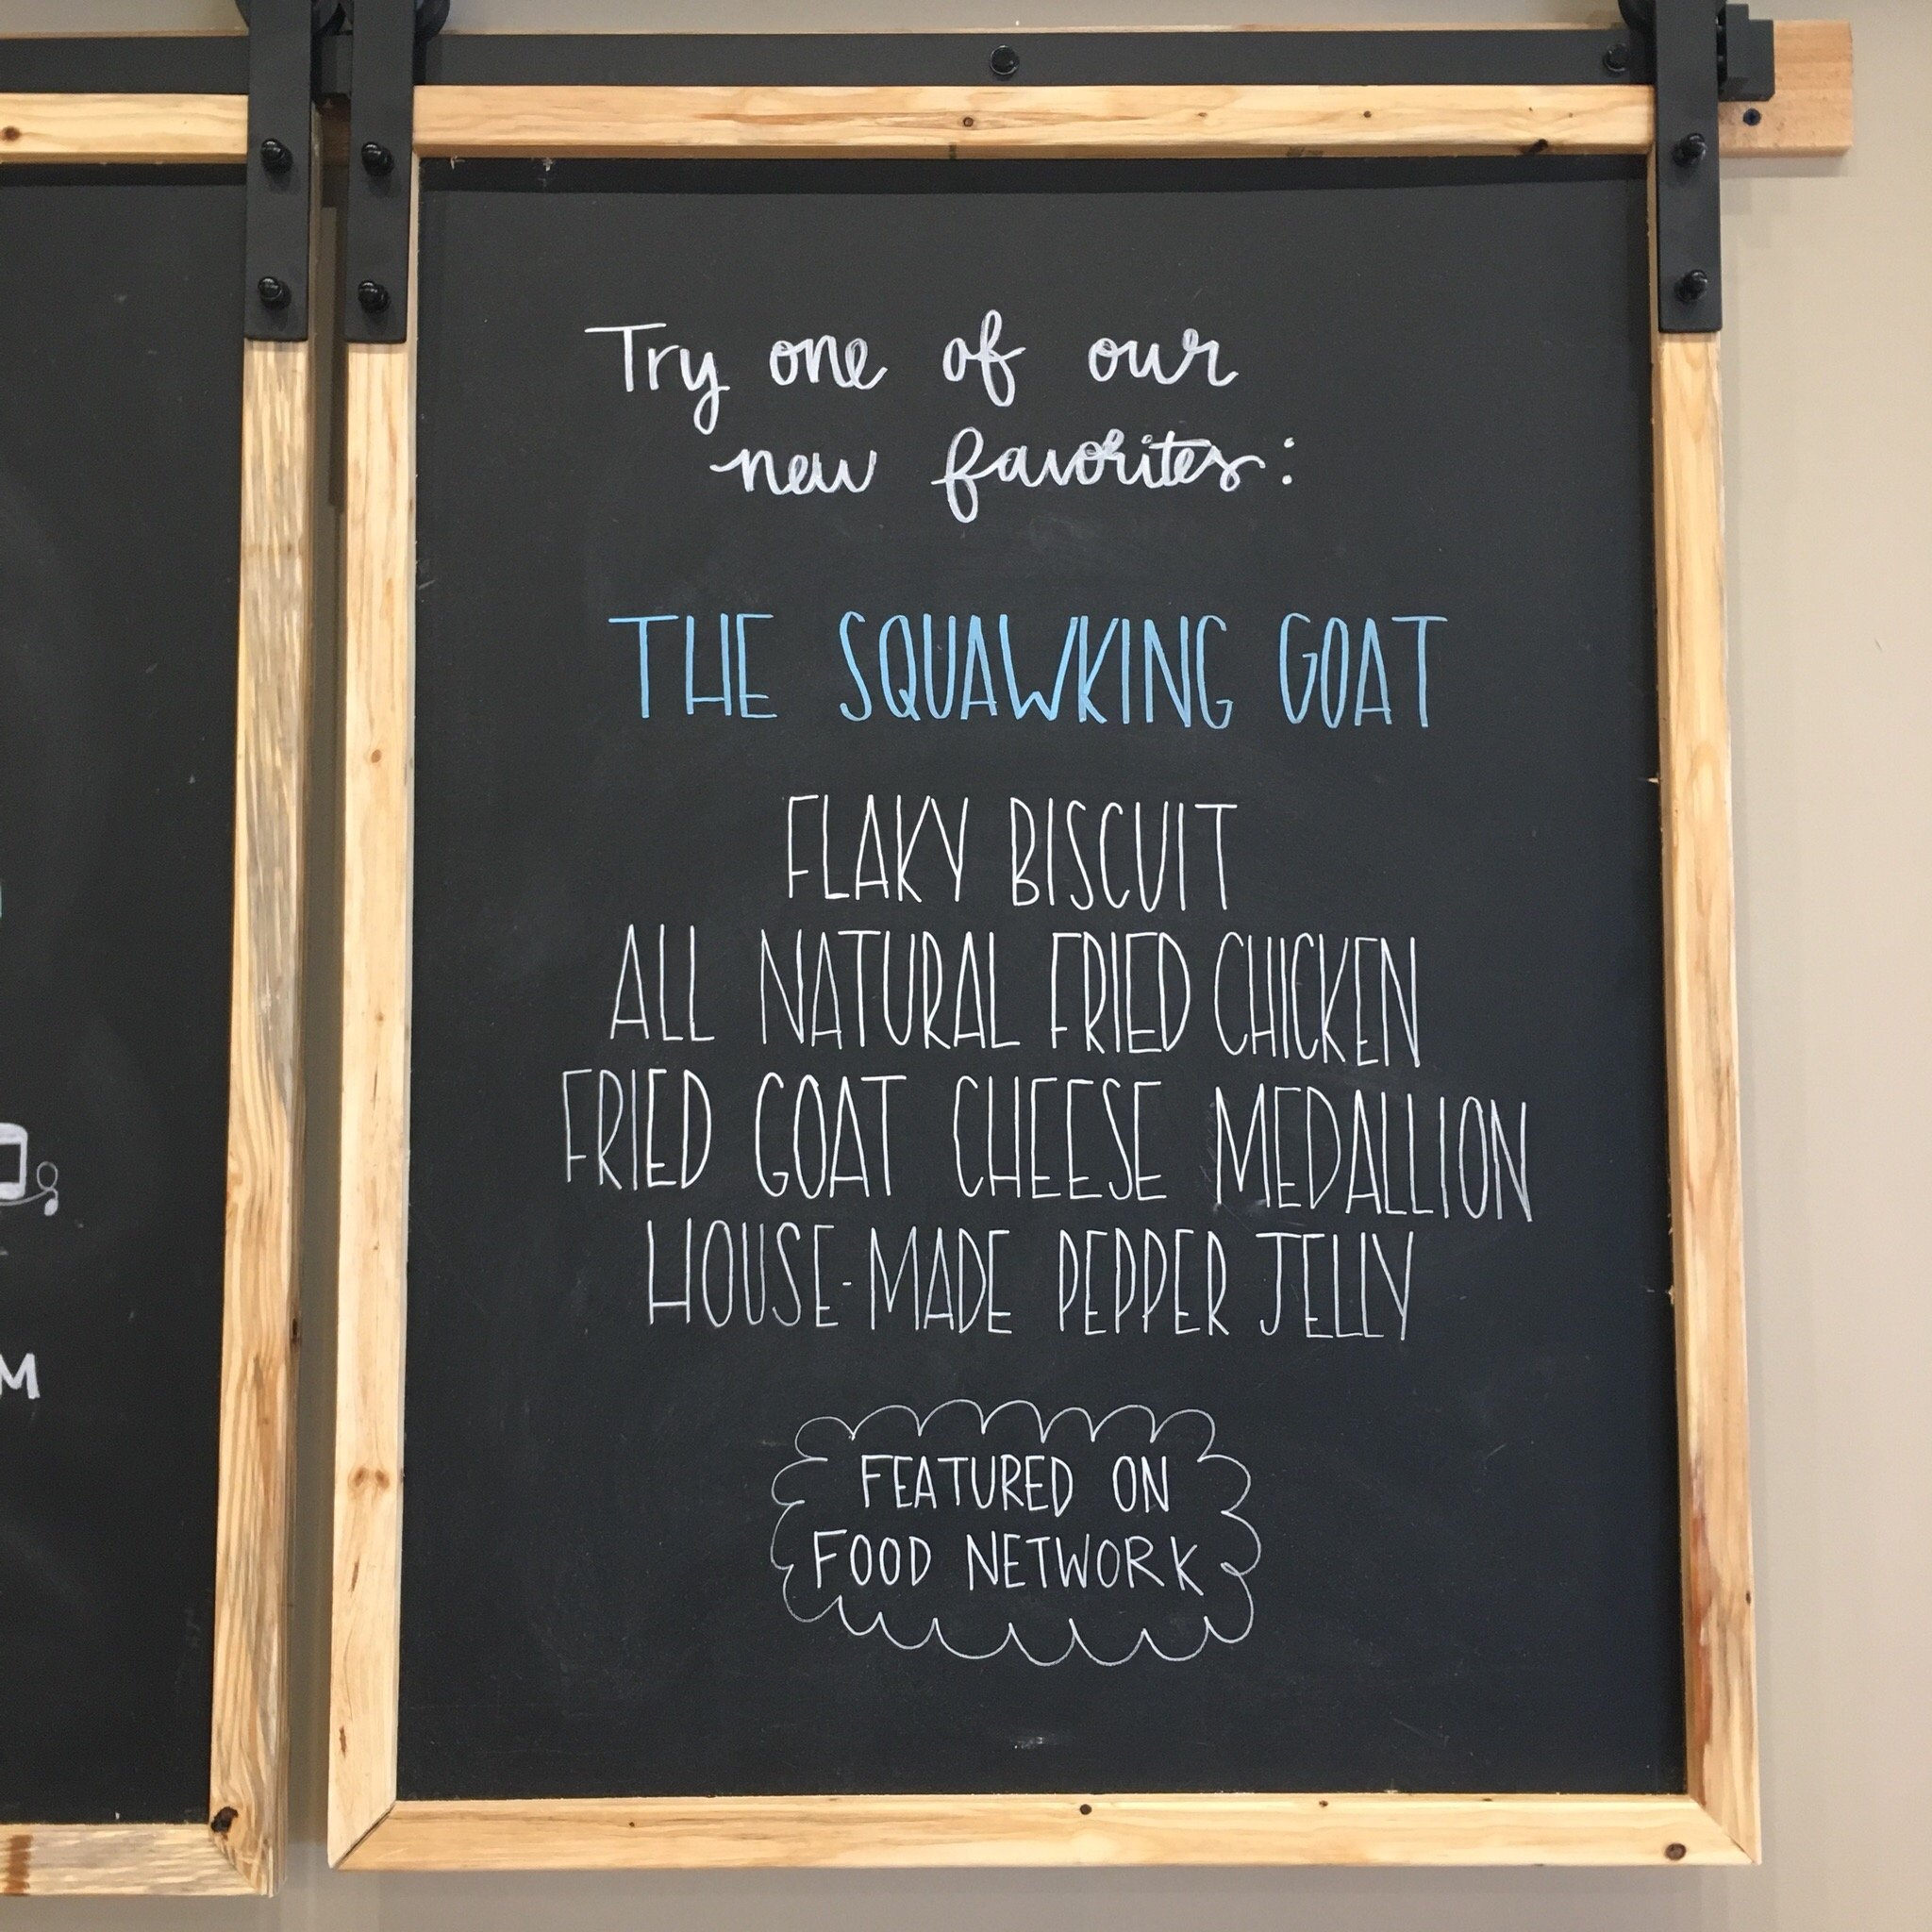 Try one of our
new favorites:
THE SQUAWKING GOAT
FLAKY BISCUIT
ALL NATURAL FRIED CHICKEN
FRIED GOAT CHEESE MEDALLION
HOUSE-MADE PEPPER JELLY
FEATURED ON
FOOD NETWORK